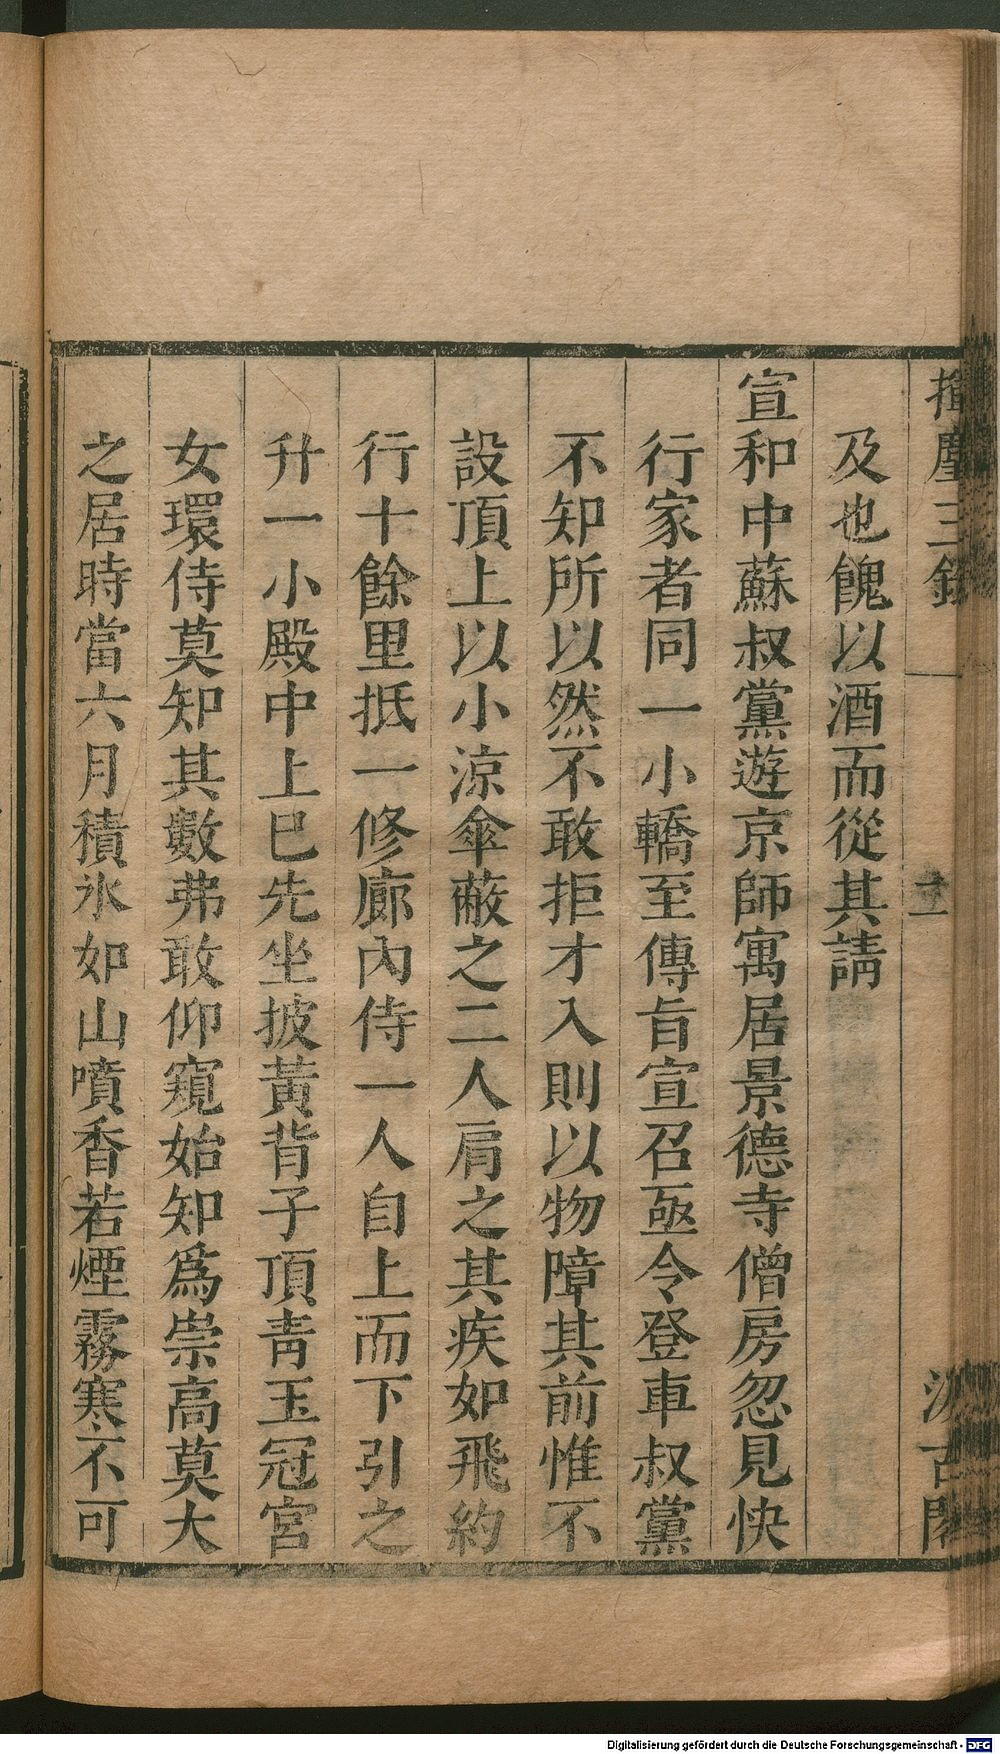 揮麈三錄
二
汲古閣
及也餽以酒而從其請
宣和中蘇叔黨遊京師寓居景德寺僧房忽見快
行家者同一小轎至傳旨宣召亟令登車叔黨
不知所以然不敢拒才入則以物障其前惟不
設頂上以小涼傘蔽之二人肩之其疾如飛約
行十餘里抵一修廊內侍一人自上而下引之
升一小殿中上已先坐披黃背子頂靑玉冠宮
女環侍莫知其數弗敢仰窺始知爲崇高莫大
之居時當六月積氷如山噴香若煙霧寒不可
Digitalisierung gefördert durch die Deutsche Forschungsgemeinschaft - DFG